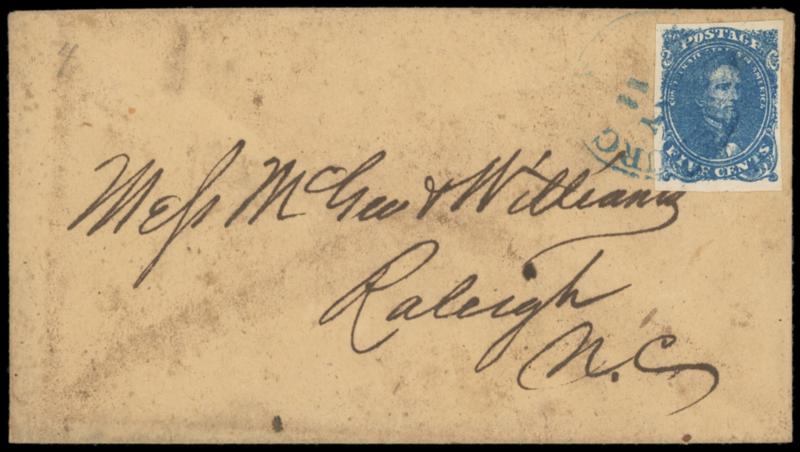 4
POSTAGE
CONFEDERATE STATES OF AMERICA
FIVE CENTS
URG
Mess McGee & Williams
Raleigh
N.C.